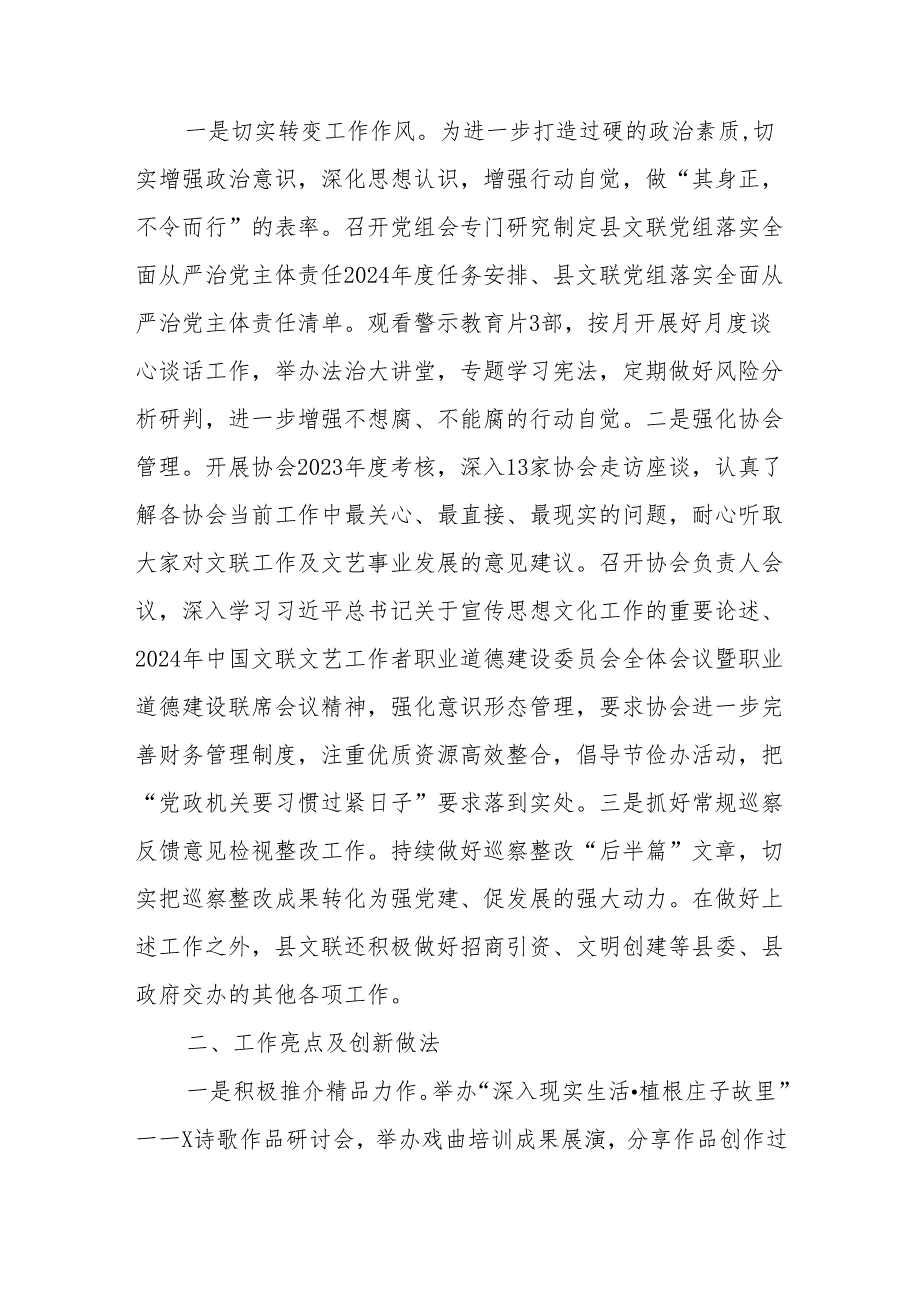 一是切实转变工作作风。为进一步打造过硬的政治素质,切
实增强政治意识，深化思想认识，增强行动自觉，做“其身正，
不令而行”的表率。召开党组会专门研究制定县文联党组落实全
面从严治党主体责任2024年度任务安排、县文联党组落实全面从
严治党主体责任清单。观看警示教育片3部，按月开展好月度谈
心谈话工作，举办法治大讲堂，专题学习宪法，定期做好风险分
析研判，进一步增强不想腐、不能腐的行动自觉。二是强化协会
管理。开展协会2023年度考核，深入13家协会走访座谈，认真了
解各协会当前工作中最关心、最直接、最现实的问题，耐心听取
大家对文联工作及文艺事业发展的意见建议。召开协会负责人会
议，深入学习习近平总书记关于宣传思想文化工作的重要论述、
2024年中国文联文艺工作者职业道德建设委员会全体会议暨职业
道德建设联席会议精神，强化意识形态管理，要求协会进一步完
善财务管理制度，注重优质资源高效整合，倡导节俭办活动，把
“党政机关要习惯过紧日子”要求落到实处。三是抓好常规巡察
反馈意见检视整改工作。持续做好巡察整改“后半篇”文章，切
实把巡察整改成果转化为强党建、促发展的强大动力。在做好上
述工作之外，县文联还积极做好招商引资、文明创建等县委、县
政府交办的其他各项工作。
二、工作亮点及创新做法
一是积极推介精品力作。举办“深入现实生活•植根庄子故里”
一一X诗歌作品研讨会，举办戏曲培训成果展演，分享作品创作过